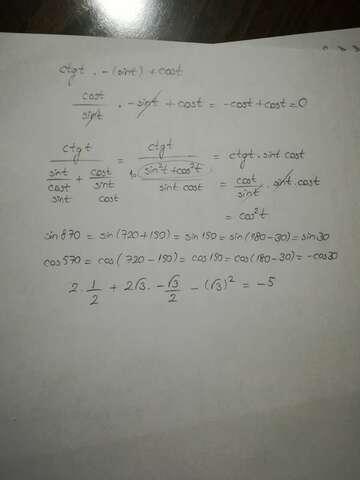 ctgt · -(sint) + cost
cost/sint · -sint + cost = -cost + cost = 0
ctgt / (sint/cost + cost/sint) = ctgt / ((sin²t + cos²t)/(sint cost)) = ctgt · sint cost
sint cost
= cost/sint · sint · cost
= cos²t
sin870 = sin(720+150) = sin150 = sin(180-30) = sin30
cos570 = cos(720-150) = cos150 = cos(180-30) = -cos30
2 · 1/2 + 2√3 · -√3/2 - (√3)² = -5